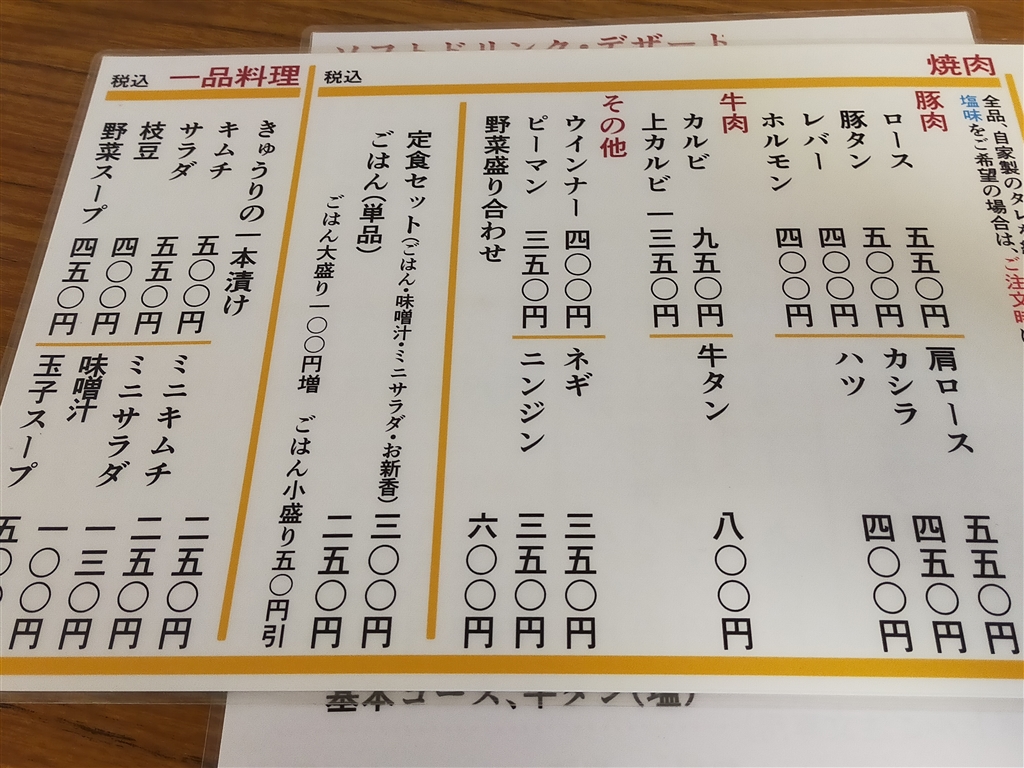 ソフトドリンク・デザート
焼肉 税込
全品、自家製のタレ
塩味をご希望の場合は、ご注文時
豚肉
ロース 五五〇円 肩ロース 五五〇円
豚タン 五〇〇円 カシラ 四五〇円
レバー 四〇〇円 ハツ 四〇〇円
ホルモン 四〇〇円
牛肉
カルビ 九五〇円 牛タン 八〇〇円
上カルビ 一三五〇円
その他
ウインナー 四〇〇円 ネギ 三五〇円
ピーマン 三五〇円 ニンジン 三五〇円
野菜盛り合わせ 六〇〇円
定食セット(ごはん・味噌汁・ミニサラダ・お新香) 三〇〇円
ごはん(単品) 二五〇円
ごはん大盛り一〇〇円増 ごはん小盛り五〇円引
一品料理 税込
きゅうりの一本漬け 二五〇円
キムチ 五〇〇円 ミニキムチ 二五〇円
サラダ 五五〇円 ミニサラダ 一三〇円
枝豆 四〇〇円 味噌汁 一〇〇円
野菜スープ 四五〇円 玉子スープ 五〇
基本コース、牛タン(塩)